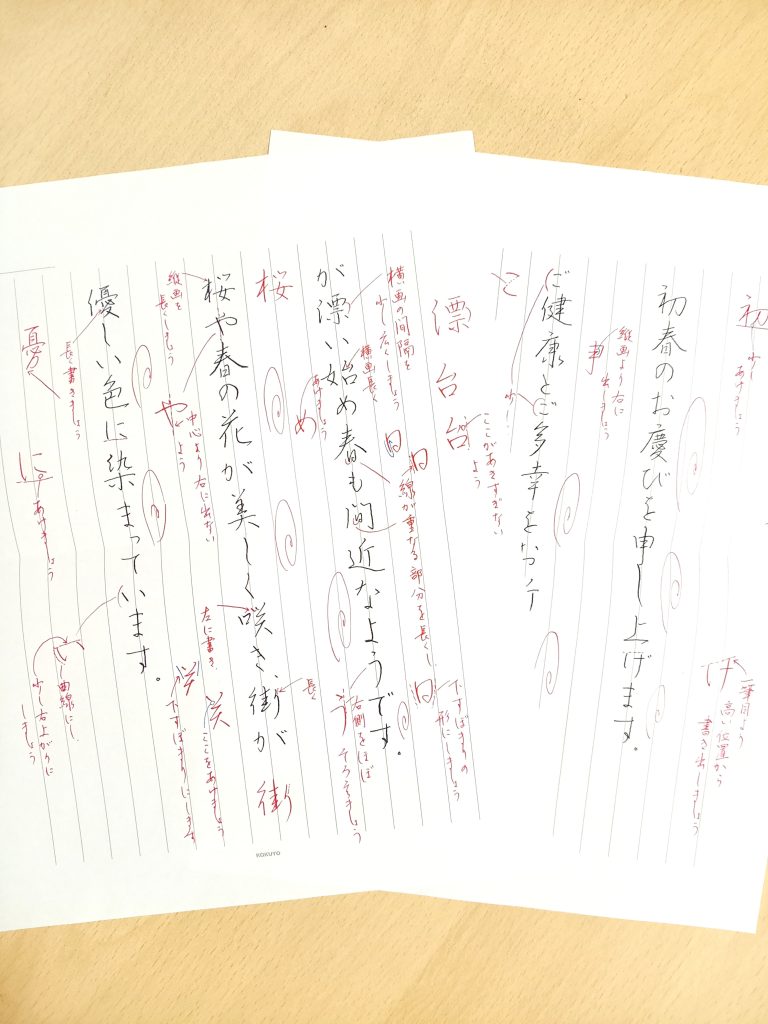 初春のお慶びを申し上げます。
ご健康とご多幸を
初
少し
あけましょう
縦画より右に
出しましょう
事
一筆目より
高い位置から
書き出しましょう
と
少し
ここがあきすぎない
よう
漂
台
台
横画の間隔を
少し広くしましょう
横画長く
あけましょう
め
日
日
線が重なる部分を長くし、
下すぼまりの
形にしましょう
が漂い始め春も間近なようです。
う
右側をほぼ
そろえましょう
桜
桜や春の花が美しく咲き、街が
長く
街
縦画を
長くしましょう
や
中心より右に出ない
よう
左に書き、
咲
咲
ここをあけましょう
下すぼまりにします
優しい色に染まっています。
長く書きましょう
憂
に
あけましょう
い
曲線にし、
少し右上がりに
しましょう
KOKUYO